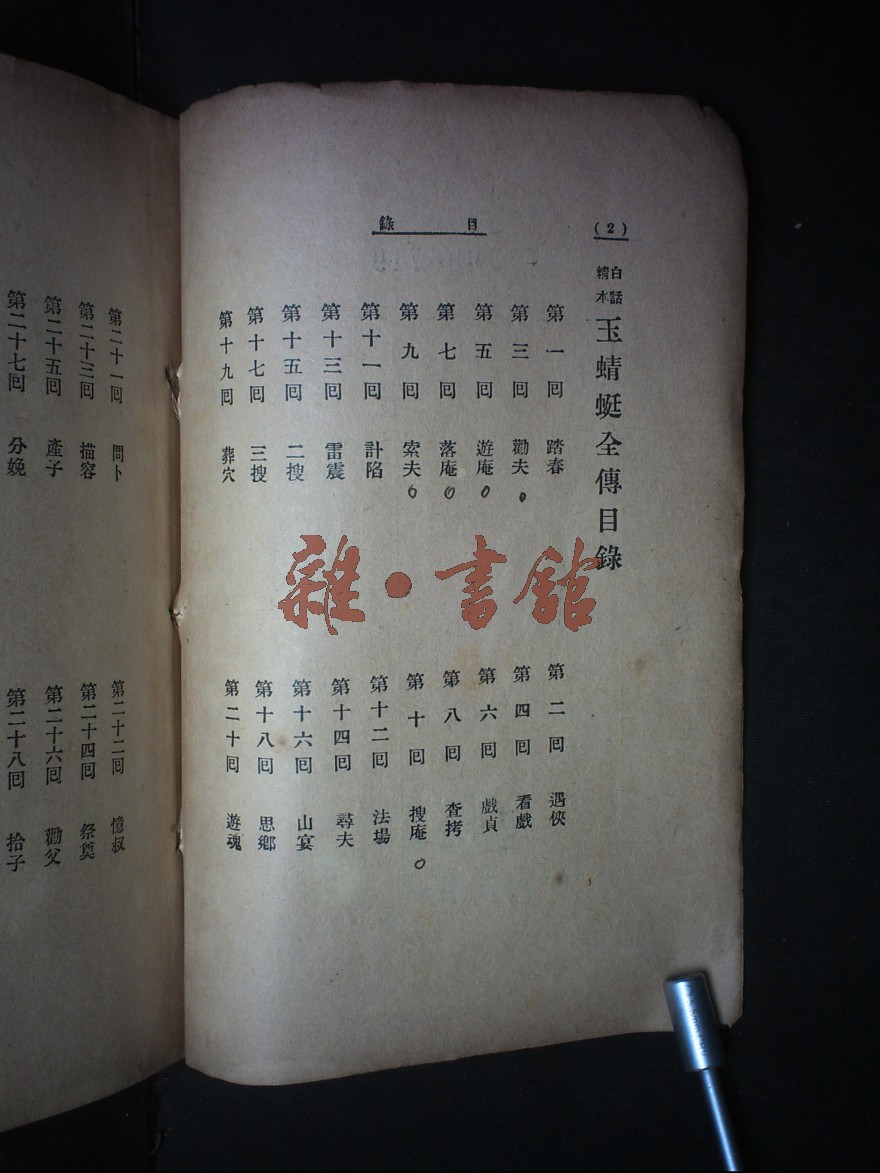 (2)
目錄
白話
繡本
玉蜻蜓全傳目錄
第一回 踏春
第二回 遇俠
第三回 勸夫
第四回 看戲
第五回 遊庵
第六回 戲貞
第七回 落庵
第八回 查拷
第九回 索夫
第十回 搜庵
第十一回 計陷
第十二回 法場
第十三回 雷震
第十四回 尋夫
第十五回 二搜
第十六回 山宴
第十七回 三搜
第十八回 思鄉
第十九回 葬穴
第二十回 遊魂
第二十一回 問卜
第二十二回 憶叔
第二十三回 描容
第二十四回 祭奠
第二十五回 產子
第二十六回 勸父
第二十七回 分娩
第二十八回 拾子
雜·書館